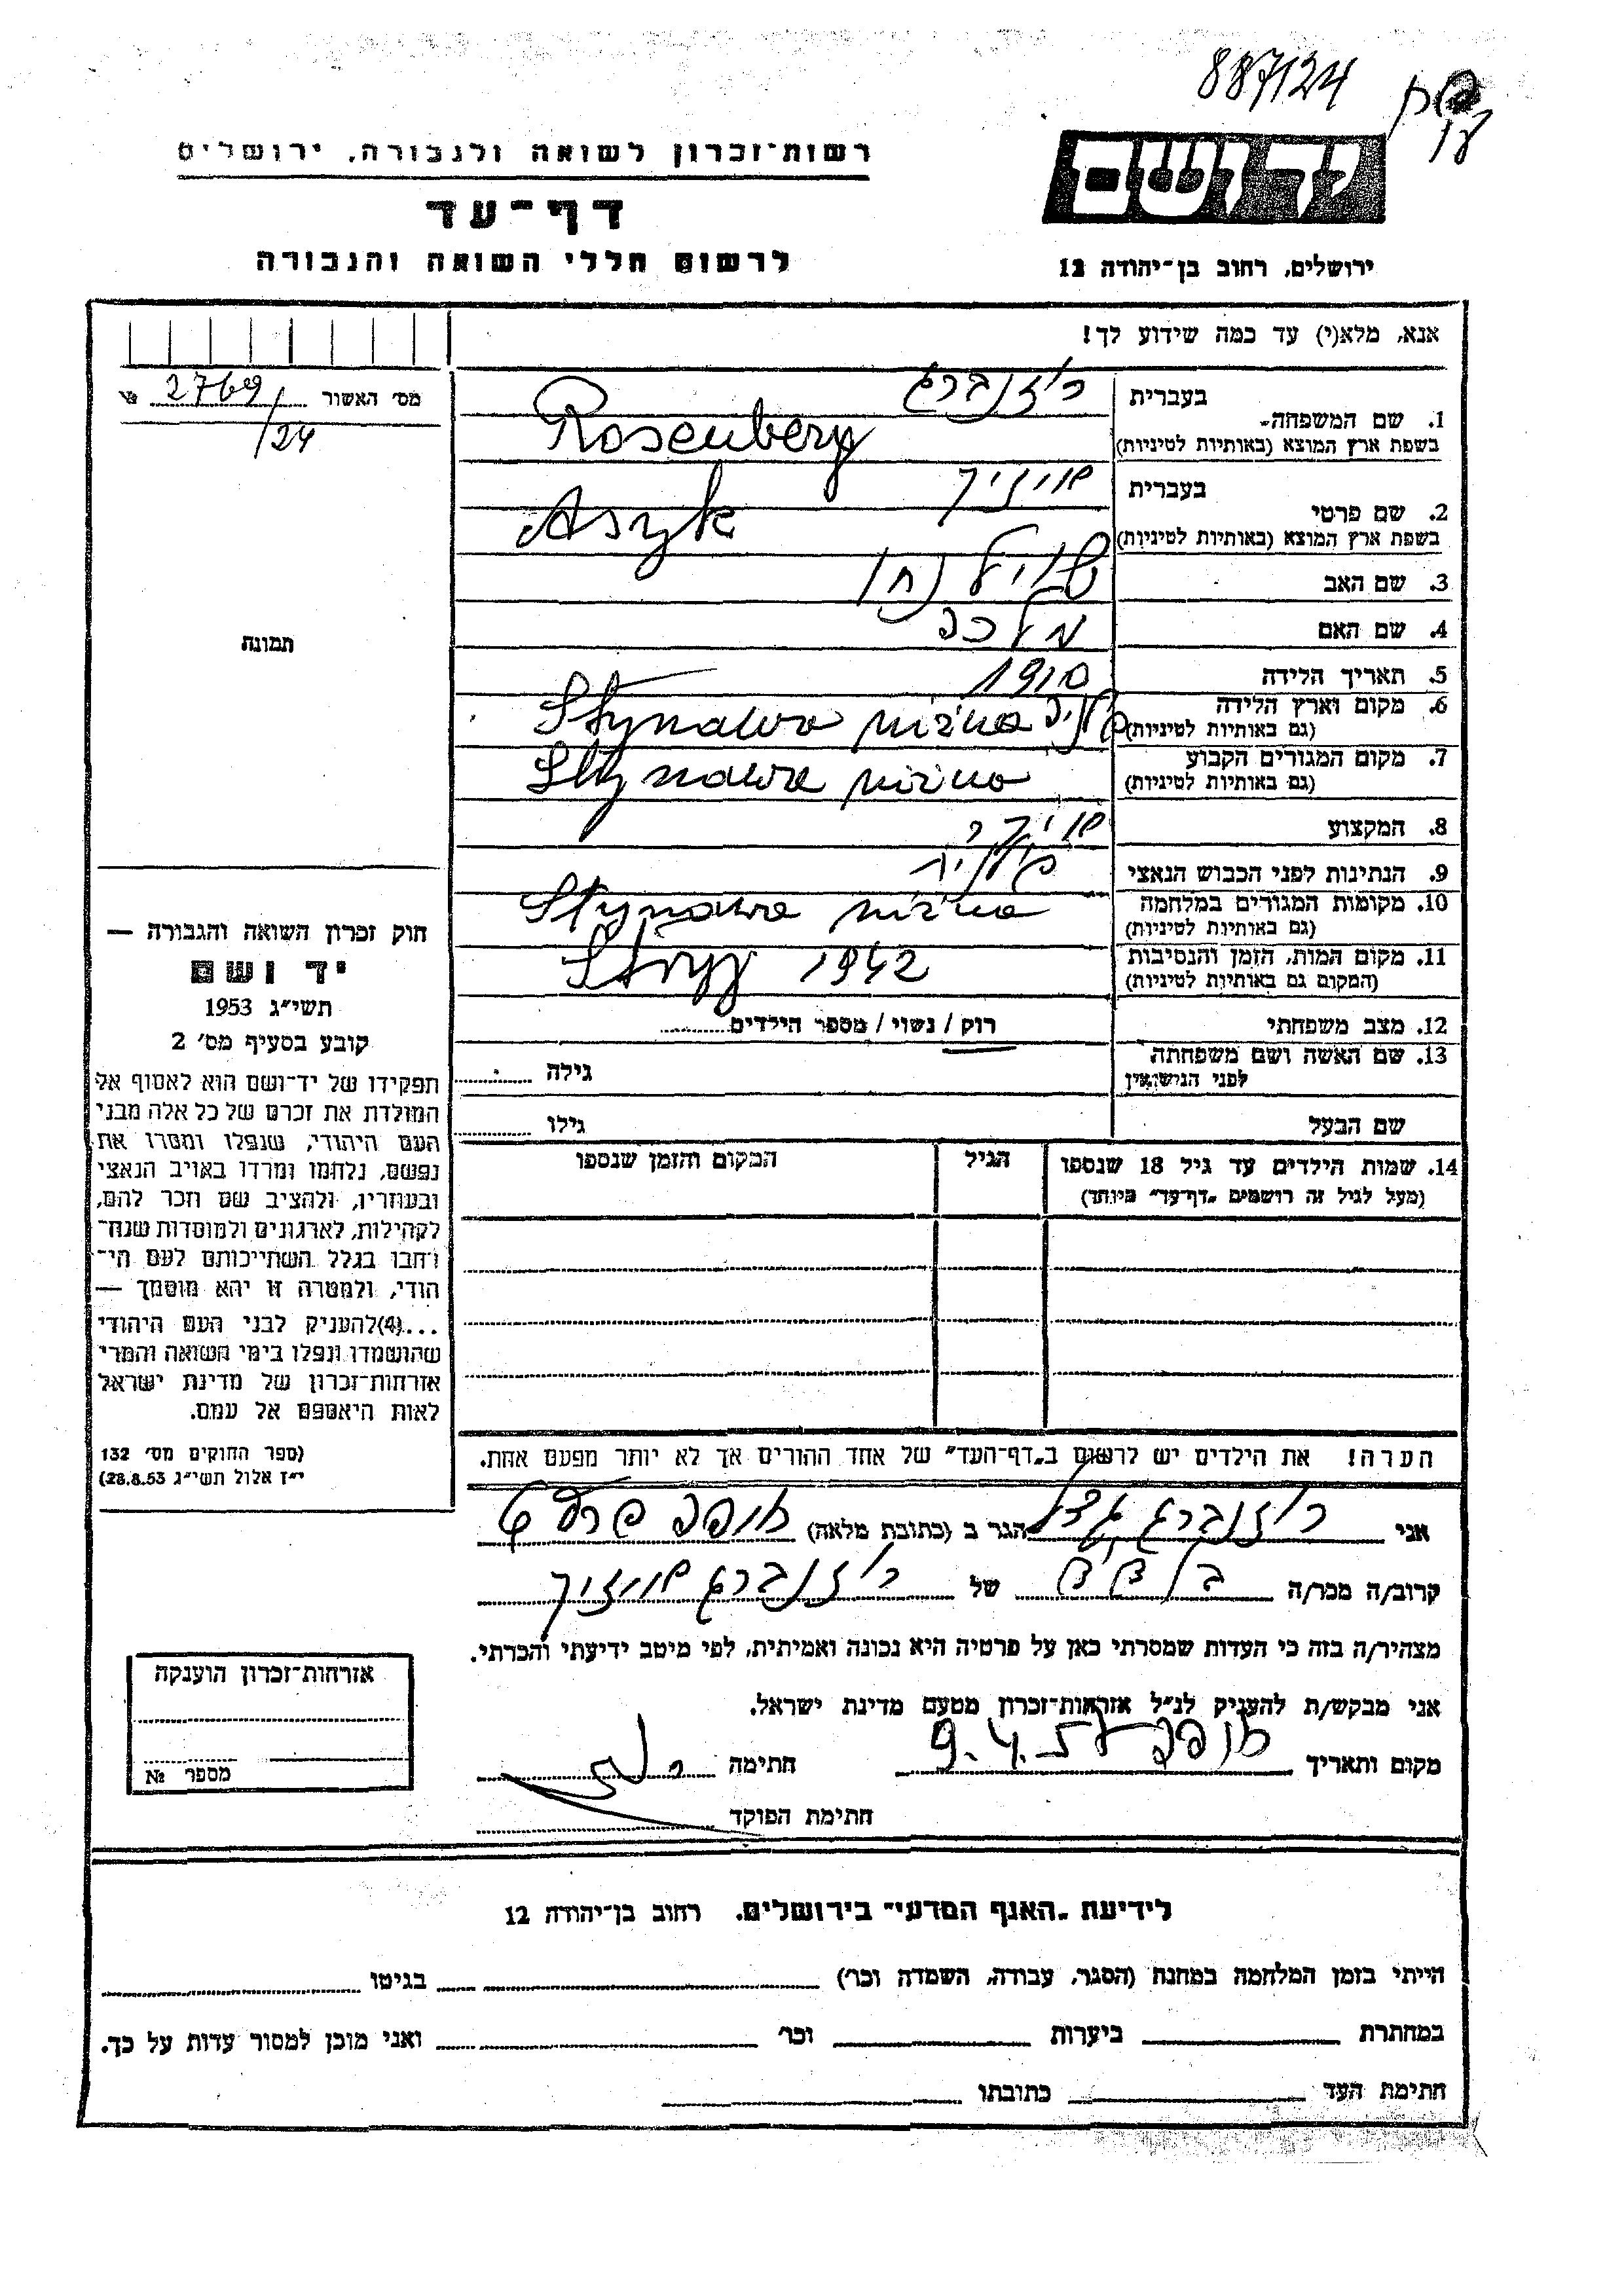 887124
רשות־זכרון לשואה ולגבורה, ירושלים
יד ושם
דף־עד
לרשום חללי השואה והגבורה
ירושלים, רחוב בן־יהודה 12
אנא, מלא(י) עד כמה שידוע לך!
מס׳ האשור 2769/24 №
בעברית רוזנברג
1. שם המשפחה-
בשפת ארץ המוצא (באותיות לטיניות) Rosenberg
בעברית אייזיק
2. שם פרטי
בשפת ארץ המוצא (באותיות לטיניות) Aszyk
3. שם האב
4. שם האם מלכה
תמונה
5. תאריך הלידה 1910
6. מקום וארץ הלידה Stynawa niżna פולניה
(גם באותיות לטיניות)
7. מקום המגורים הקבוע Stynawa niżna
(גם באותיות לטיניות)
8. המקצוע
9. הנתינות לפני הכבוש הנאצי
10. מקומות המגורים במלחמה Stynawa niżna
(גם באותיות לטיניות)
11. מקום המות, הזמן והנסיבות Stryj 1942
(המקום גם באותיות לטיניות)
12. מצב משפחתי רוק / נשוי / מספר הילדים
13. שם האשה ושם משפחתה
לפני הנישואין
גילה
שם הבעל גילו
14. שמות הילדים עד גיל 18 שנספו הגיל המקום והזמן שנספו
(מעל לגיל זה רושמים „דף־עד״ מיוחד)
הערה! את הילדים יש לרשום ב„דף־העד״ של אחד ההורים אך לא יותר מפעם אחת.
חוק זכרון השואה והגבורה —
יד ושם
תשי״ג 1953
קובע בסעיף מס׳ 2
תפקידו של יד־ושם הוא לאסוף אל
המולדת את זכרם של כל אלה מבני
העם היהודי, שנפלו ומסרו את
נפשם, נלחמו ומרדו באויב הנאצי
ובעוזריו, ולהציב שם וזכר להם,
לקהילות, לארגונים ולמוסדות שנח־
רבו בגלל השתייכותם לעם הי־
הודי, ולמטרה זו יהא מוסמך —
...(4)להעניק לבני העם היהודי
שהושמדו ונפלו בימי השואה והמרי
אזרחות־זכרון של מדינת ישראל
לאות היאספם אל עמם.
(ספר החוקים מס׳ 132
י״ז אלול תשי״ג 28.8.53)
אני רוזנברג הגר ב (כתובת מלאה) חיפה
קרוב/ה מכר/ה של רוזנברג אייזיק
מצהיר/ה בזה כי העדות שמסרתי כאן על פרטיה היא נכונה ואמיתית, לפי מיטב ידיעתי והכרתי.
אני מבקש/ת להעניק לנ״ל אזרחות־זכרון מטעם מדינת ישראל.
מקום ותאריך חיפה 9.4. חתימה
חתימת הפוקד
אזרחות־זכרון הוענקה
מספר №
לידיעת „האגף המדעי״ בירושלים, רחוב בן־יהודה 12
הייתי בזמן המלחמה במחנה (הסגר, עבודה, השמדה וכו׳) בגיטו
במחתרת ביערות וכו׳ ואני מוכן למסור עדות על כך.
חתימת העד כתובתו